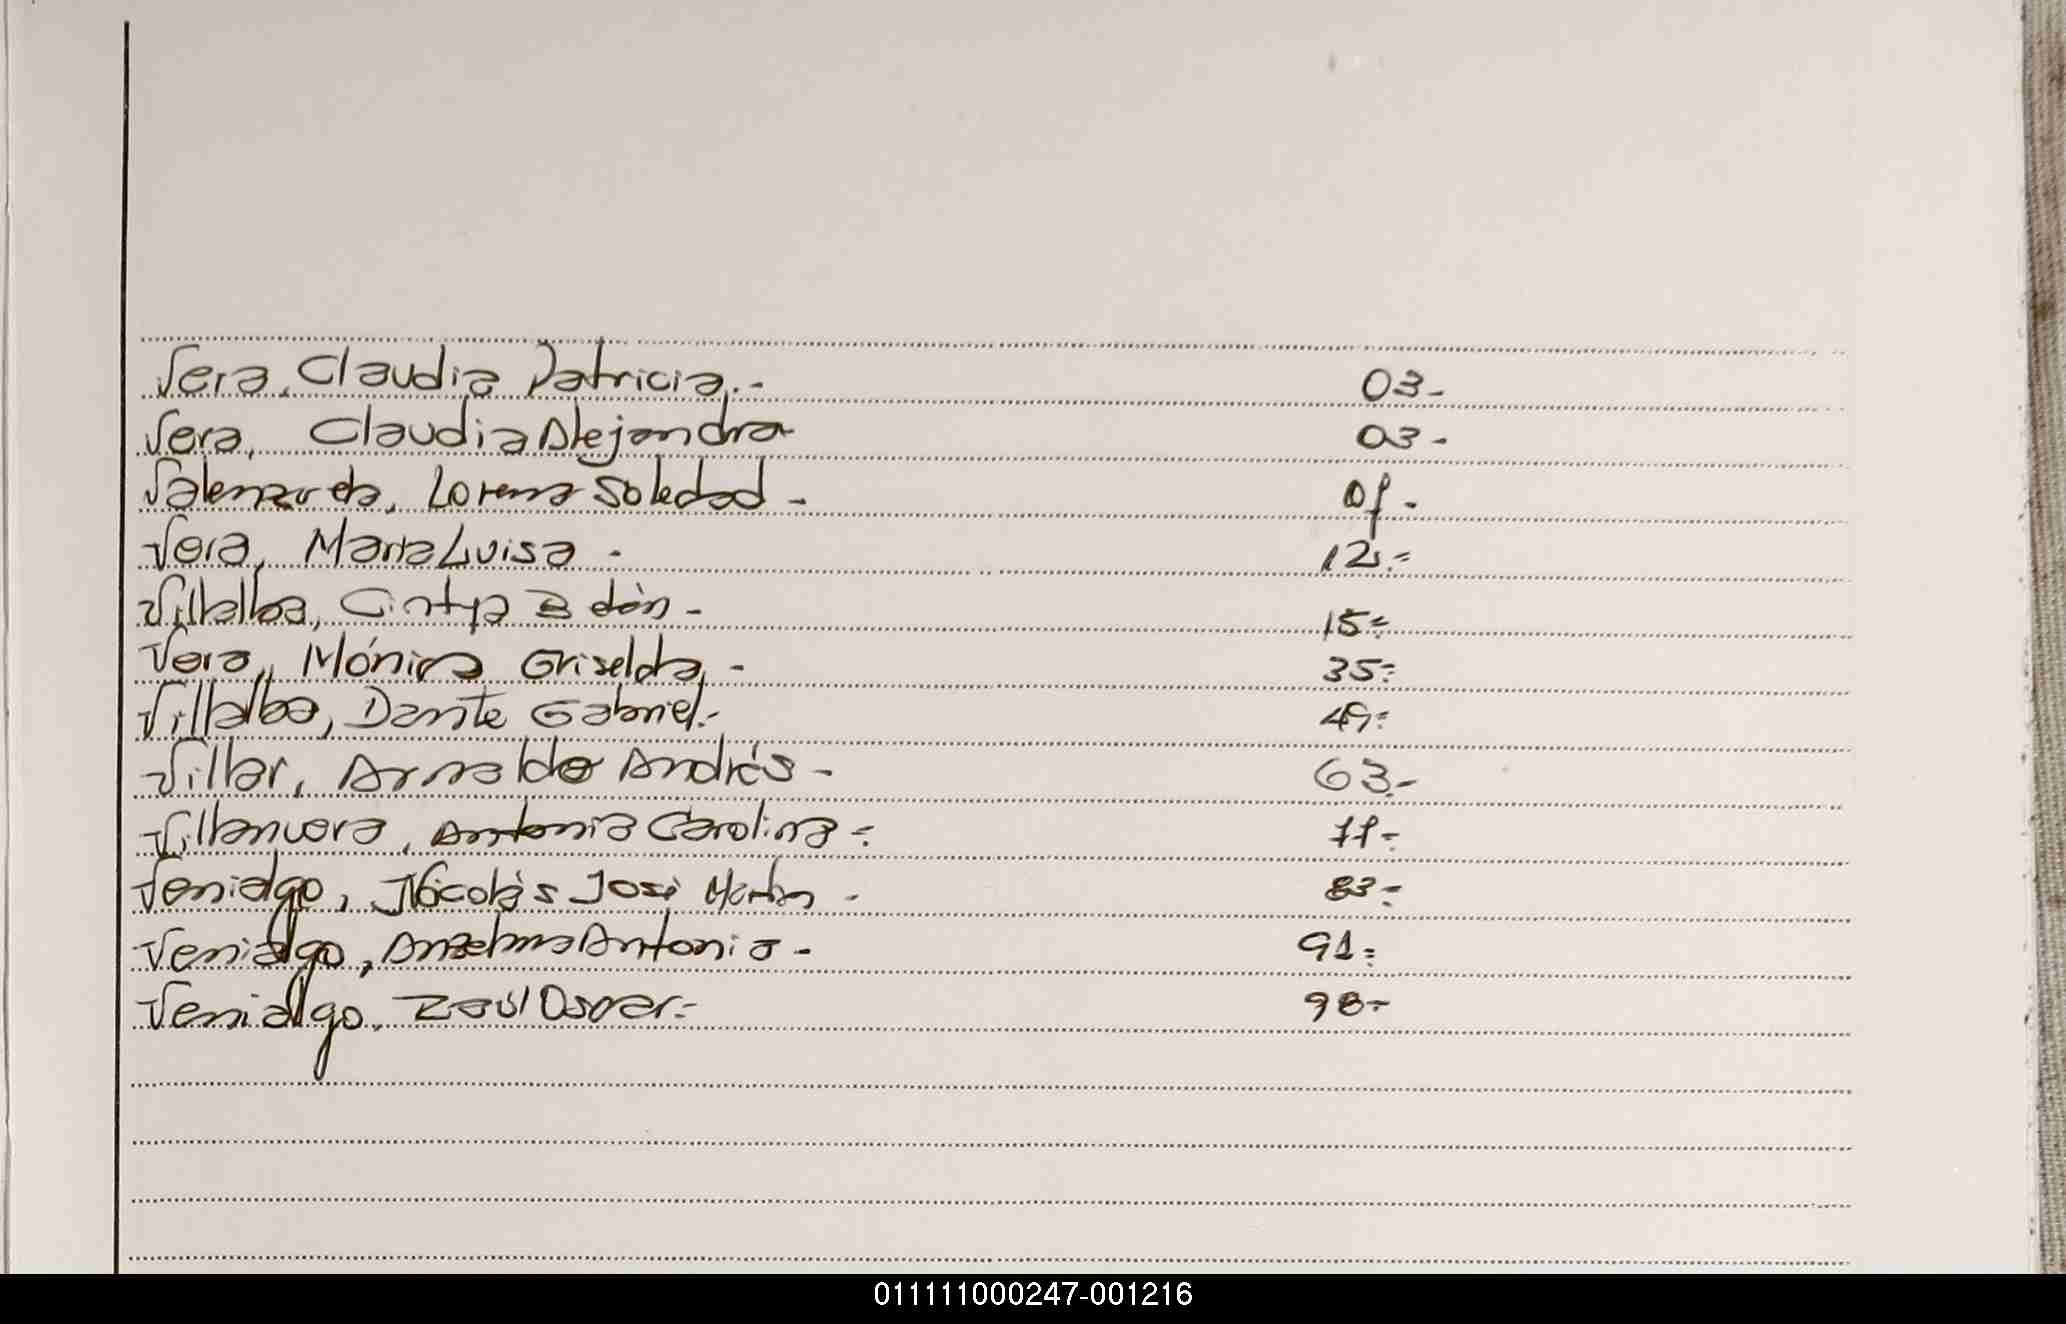 Vera, Claudia Patricia.- 03-
Vera, Claudia Alejandra 03-
Valenzuela, Lorena Soledad - 07-
Vera, María Luisa - 12.=
Villalba, Cintya Belén - 15=
Vera, Mónica Griselda, - 35=
Villalba, Dante Gabriel.- 49=
Villar, Arnaldo Andrés - 63.-
Villanueva, Antonia Carolina = 77=
Venialgo, Nicolás José Martín - 83=
Venialgo, Anselmo Antonio - 91=
Venialgo, Raúl Oscar.= 98=
011111000247-001216